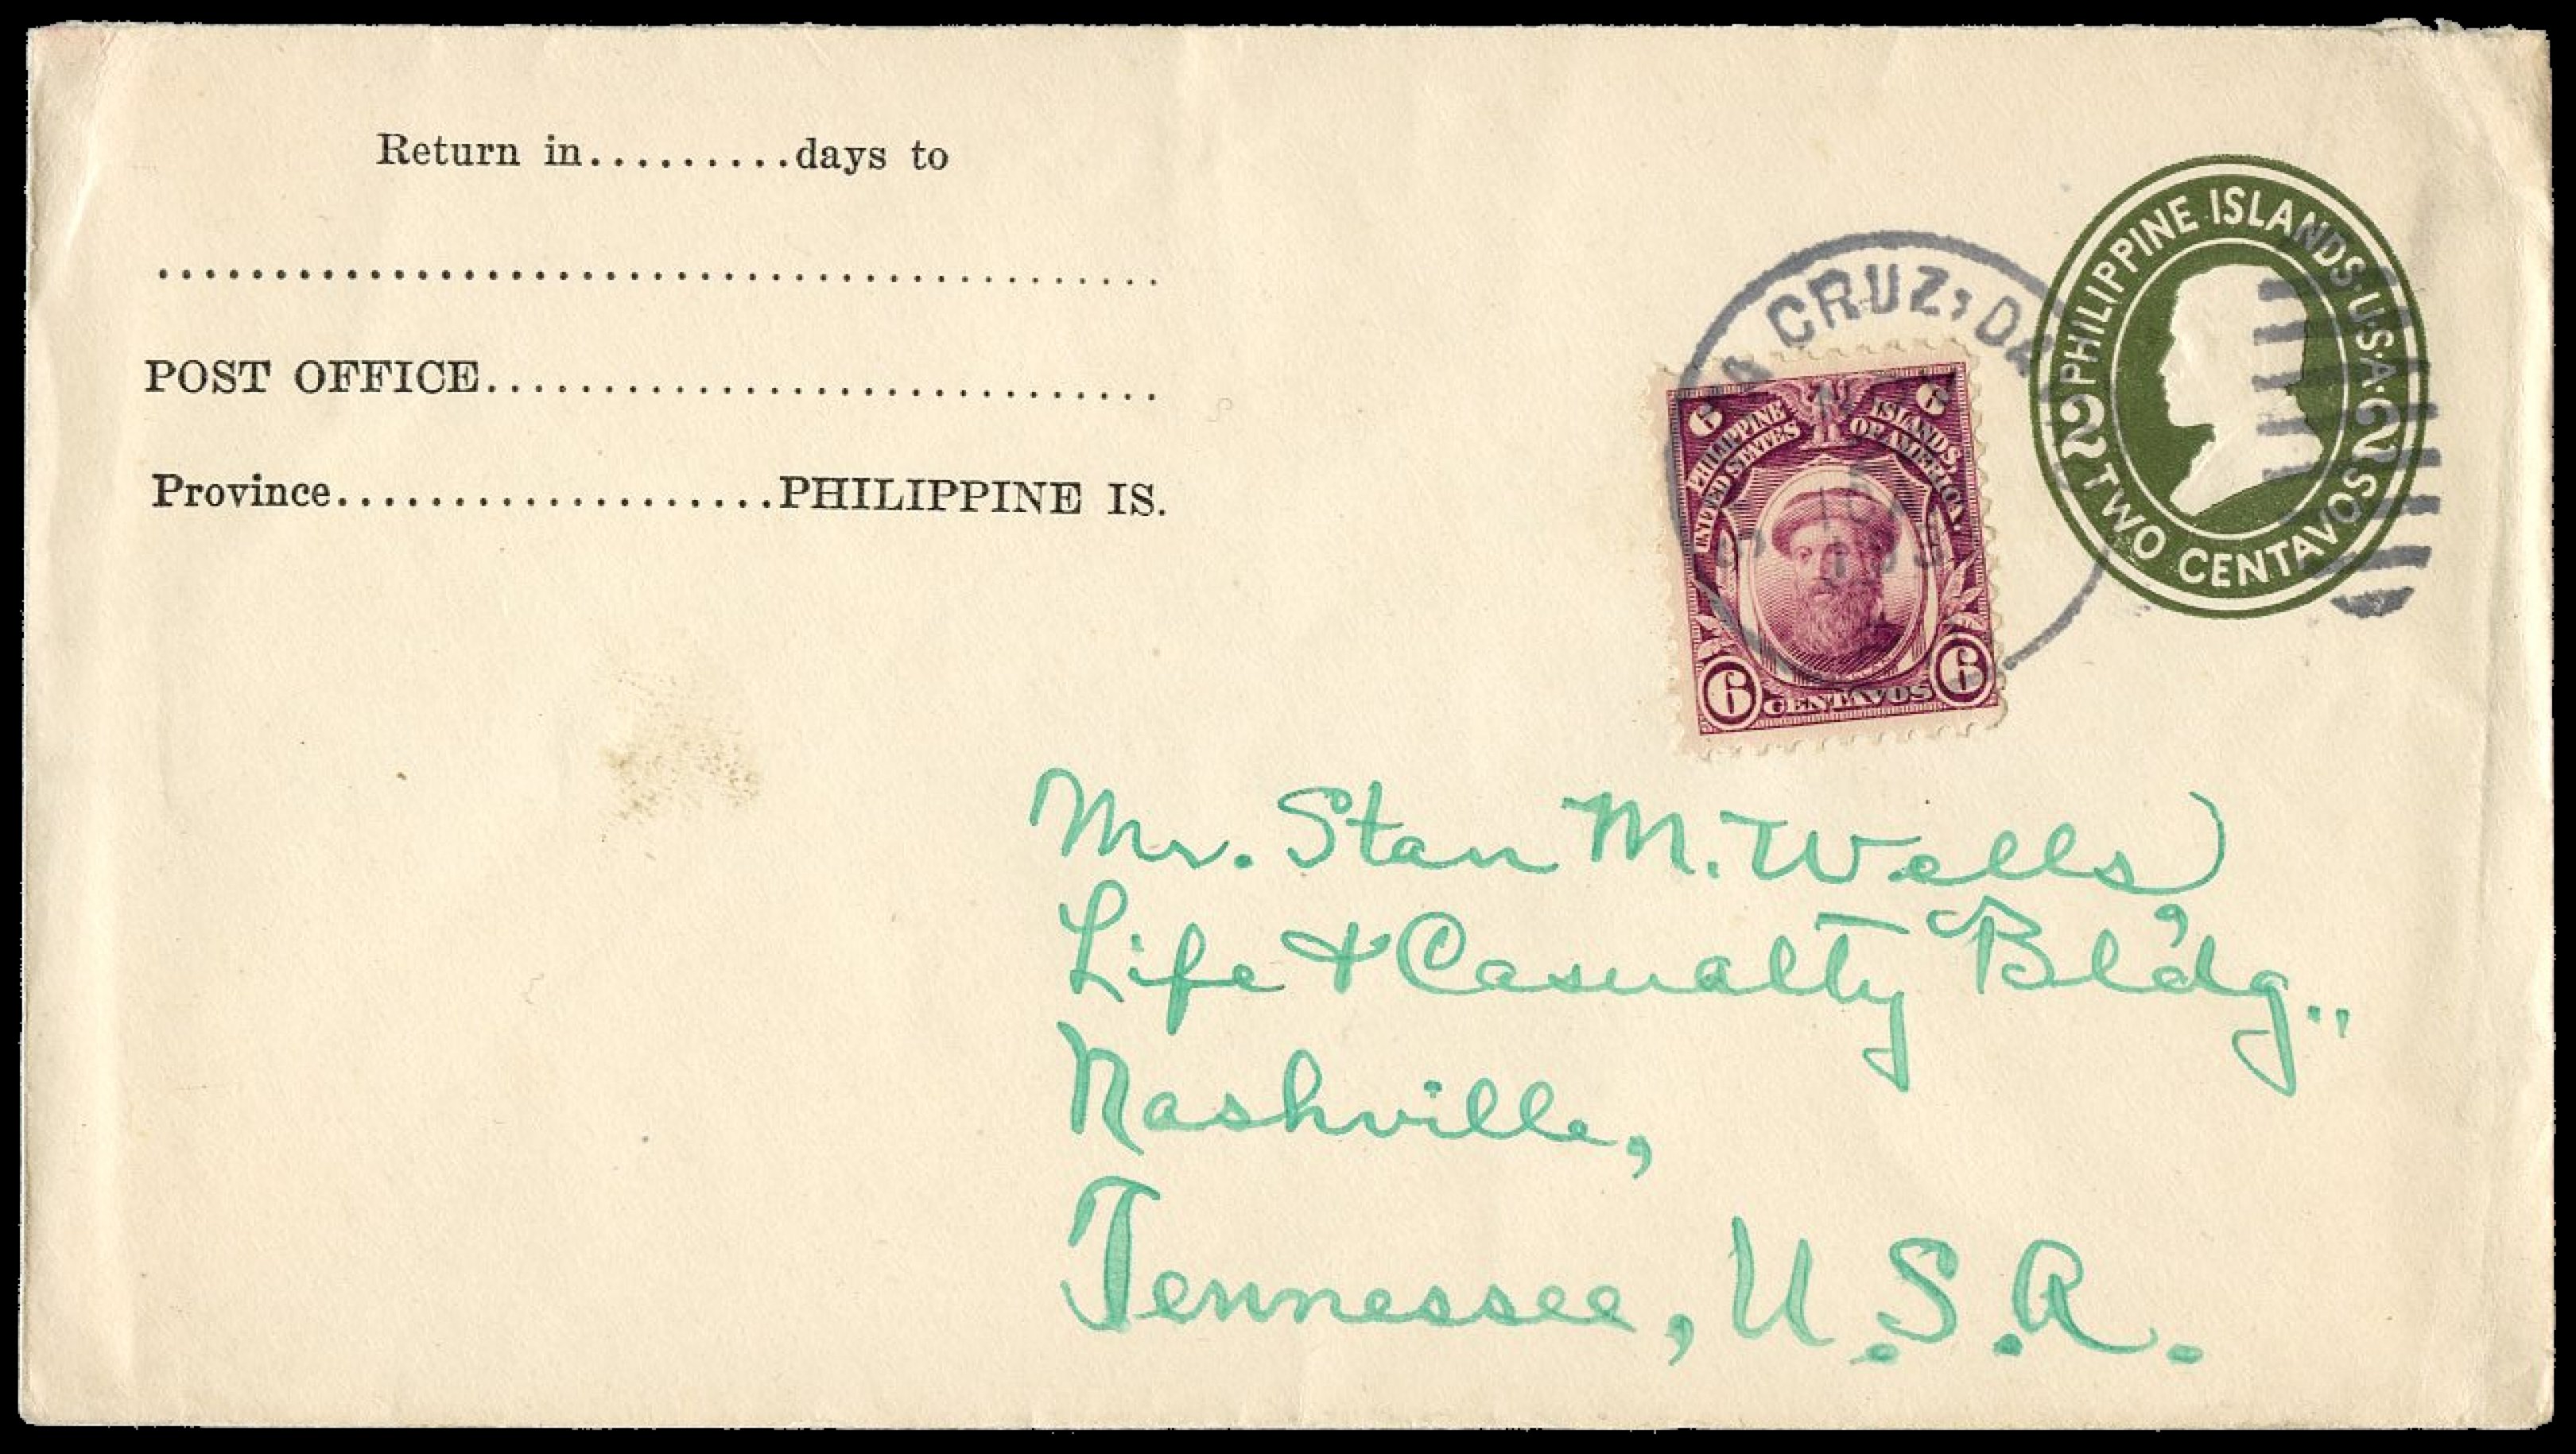 Return in.........days to
POST OFFICE.............................
Province...................PHILIPPINE IS.
CRUZ,
PHILIPPINE ISLANDS·U.S.A.
2 2
TWO CENTAVOS
6 6
PHILIPPINE ISLANDS,
UNITED STATES OF AMERICA,
6 CENTAVOS 6
Mr. Stan M. Wells,
Life & Casualty Bldg.,
Nashville,
Tennessee, U.S.A.